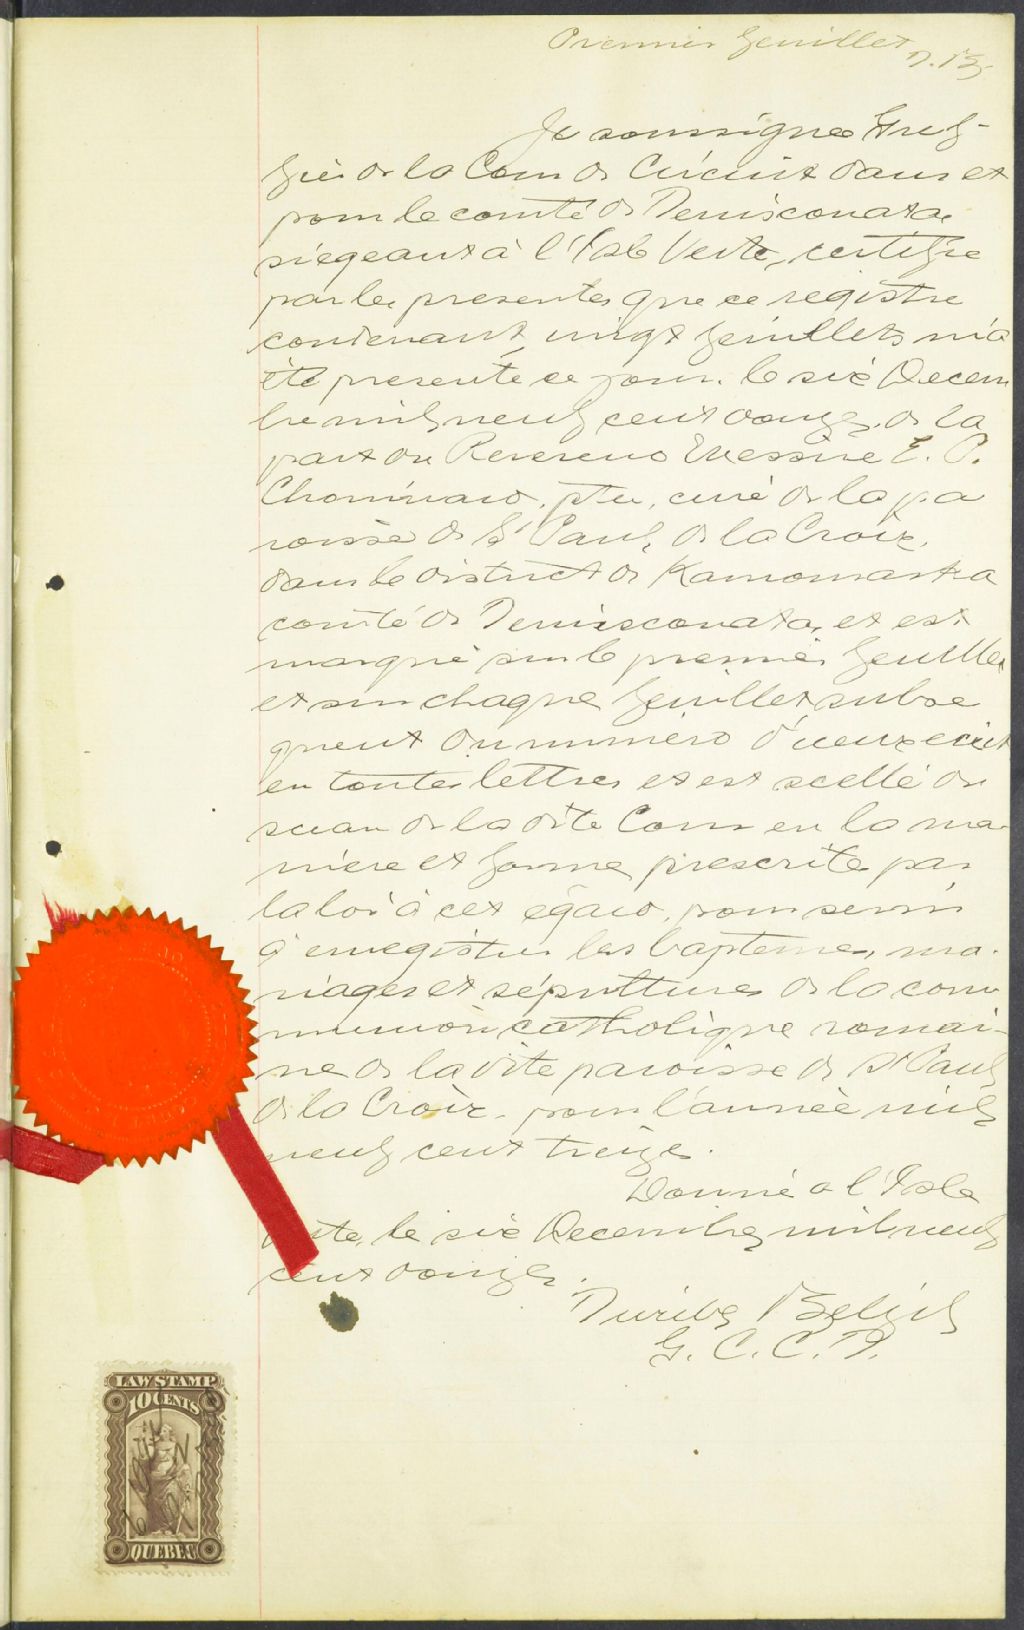 Premier feuillet
Je soussigné Gref-
fier de la Cour de Circuit dans et
pour le comté de Temisconata,
siégeant à l'Isle Verte, certifie
par les presentes que ce registre
contenant vingt feuillets m'a
été presenté ce jour, le six Decem
bre mil neuf cent douze, de la
part du Reverend Messire E. P.
Chouinard, ptre, curé de la pa
roisse de St Paul, de la Croix,
dans le district de Kamouraska
comté de Temisconata, et est
marqué sur le premier feuillet
et sur chaque feuillet subse
quent du numéro d'iceux ecrit
en toutes lettres et est scellé du
sceau de la dite Cour en la ma-
nière et forme prescrite par
la loi à cet égard, pour servir
à enregistrer les baptemes, ma-
riages et sépultures de la com
munion catholique romai-
ne de la dite paroisse de St Paul
de la Croix, pour l'année mil
neuf cent treize.
Donné a l'Isle
Verte, le six Decembre mil neuf
cent douze.
G. C. C. T.
LAW STAMP
10 CENTS
QUEBEC